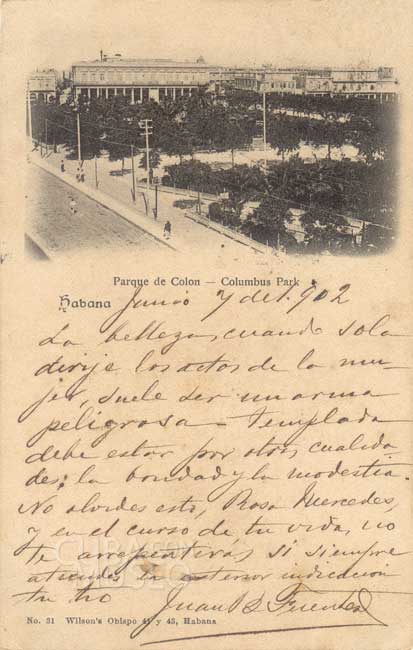 Parque de Colon — Columbus Park
Habana Junio 7 de 1.902
La belleza, cuando sola
dirije los actos de la mu-
jer, suele ser un arma
peligrosa — Templada
debe estar por otras cualida-
des: la bondad y la modestia.
No olvides esto, Rosa Mercedes,
y en el curso de tu vida, no
te arrepentiras, si siempre
atiendes la anterior indicación
tu tio Juan B Fuentes
No. 31 Wilson's Obispo 41 y 43, Habana